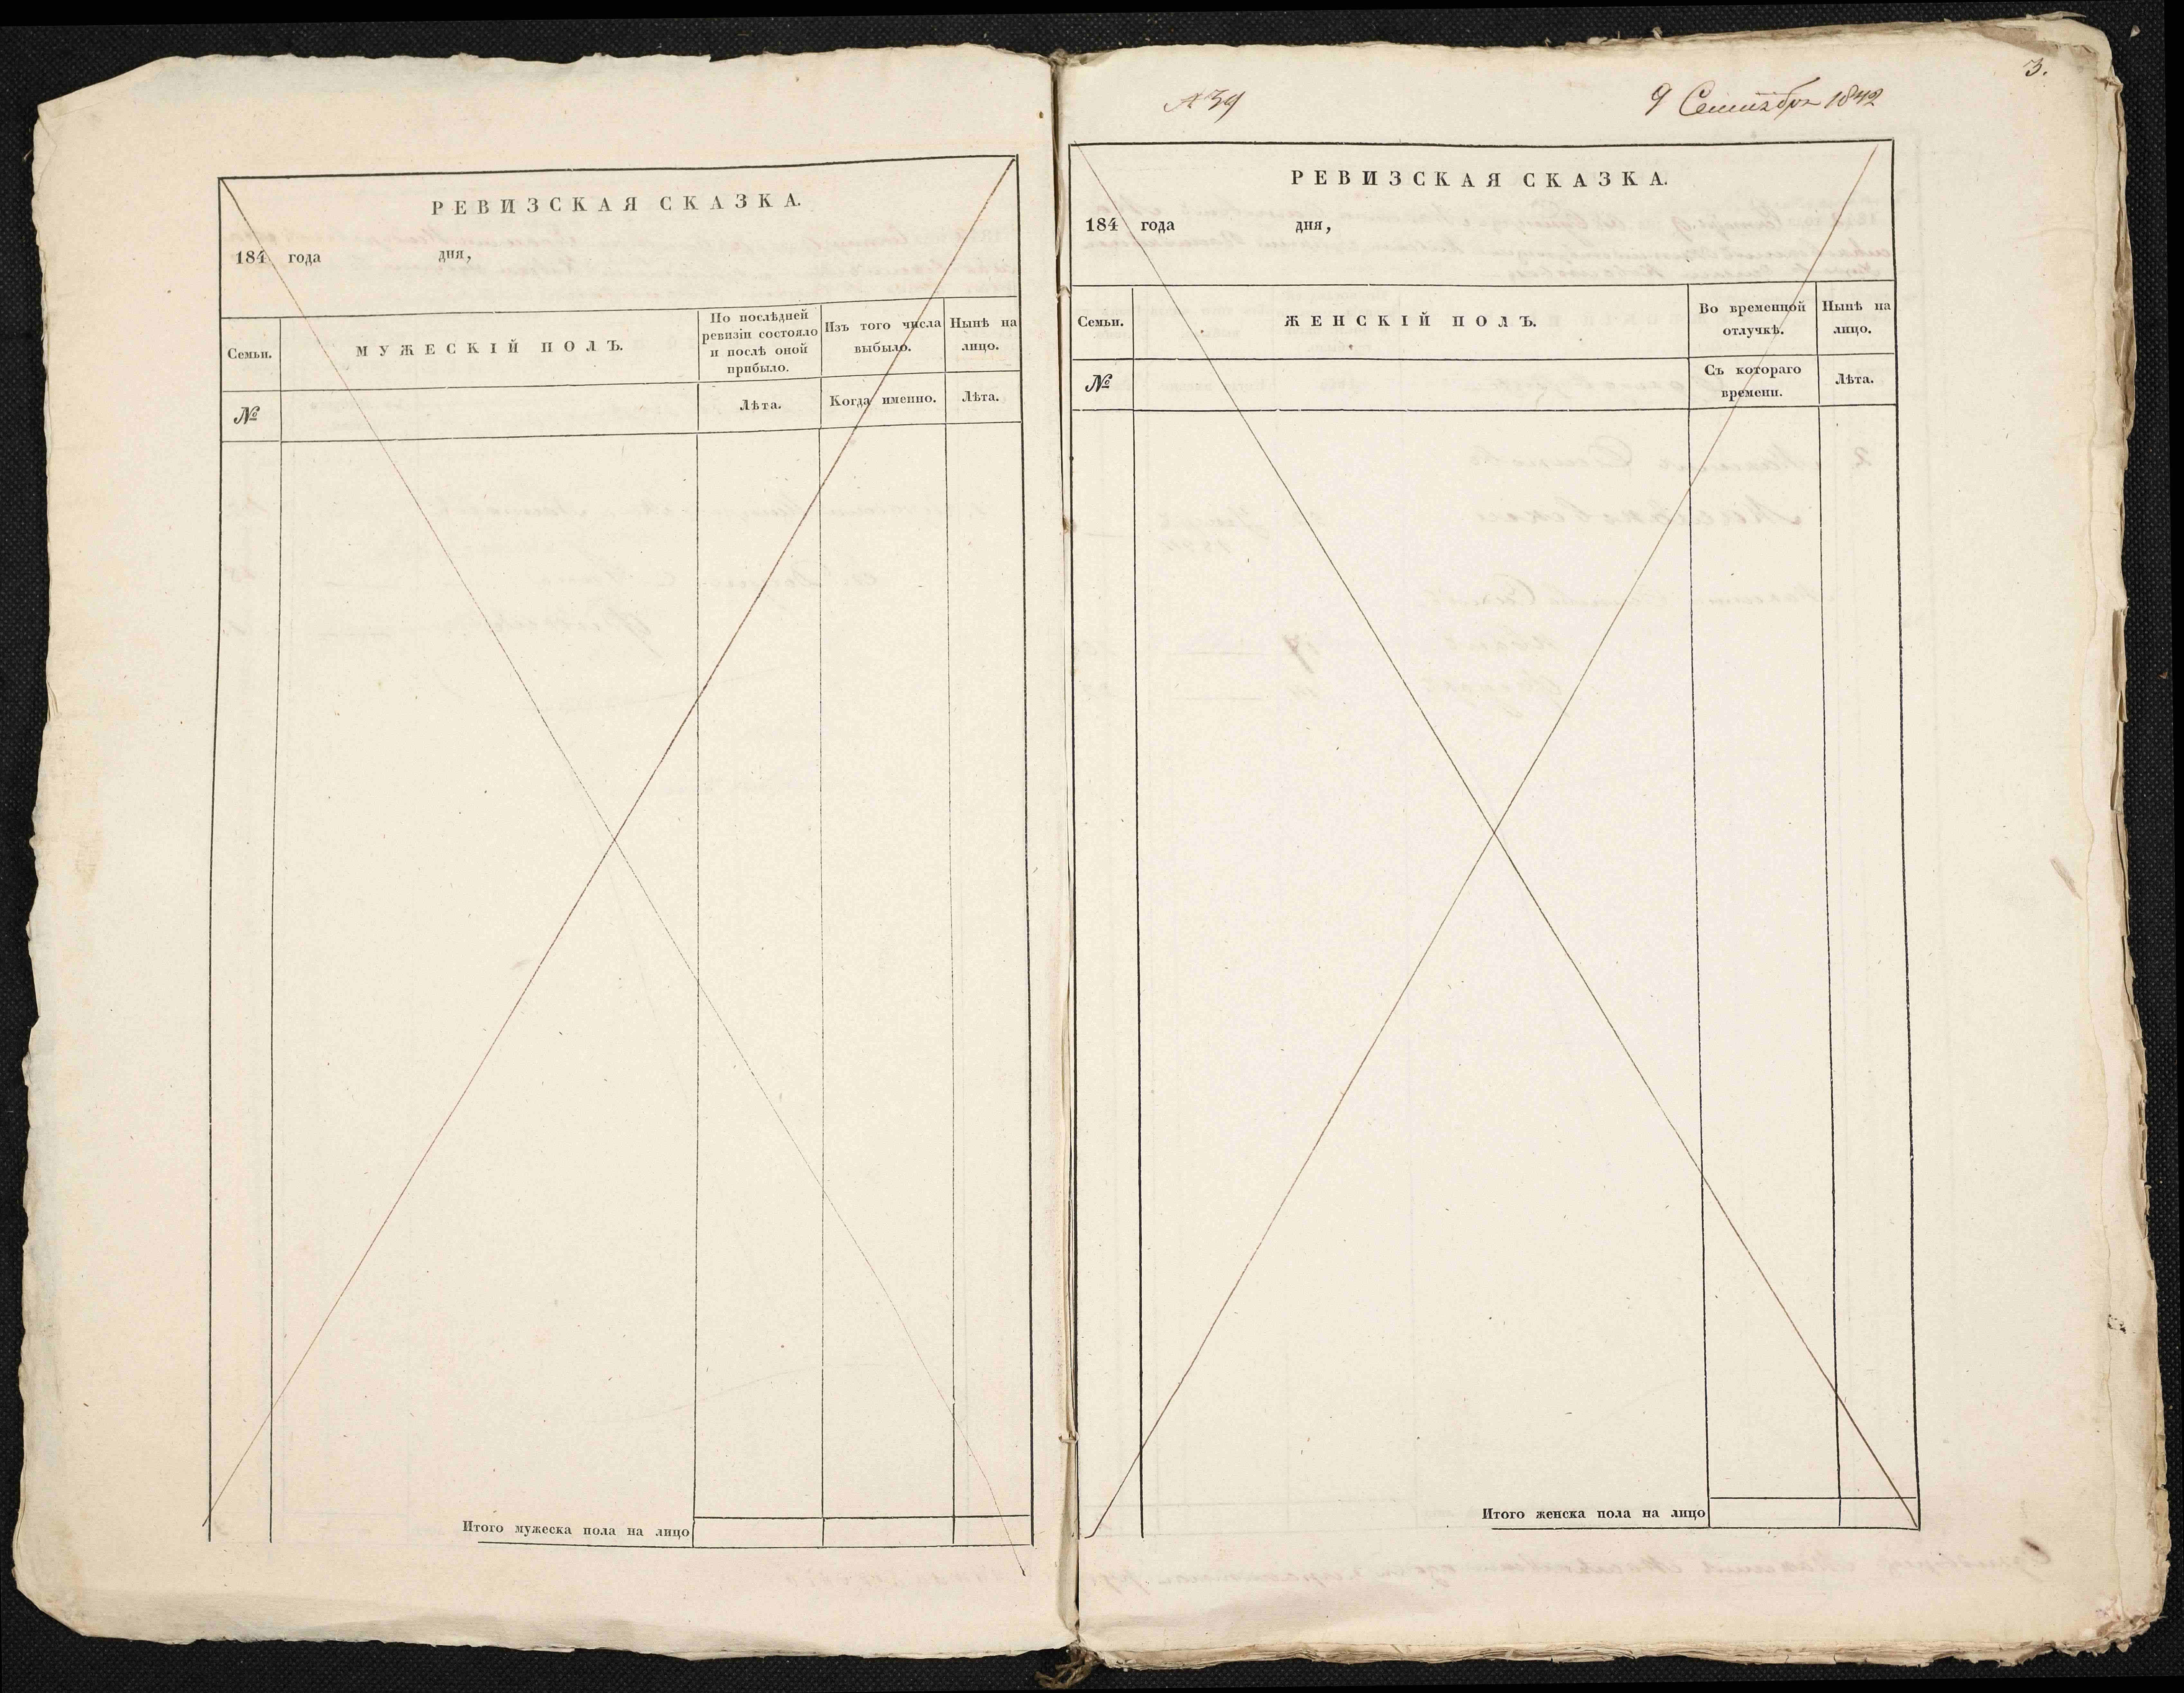 РЕВИЗСКАЯ СКАЗКА.
184 года дня,
Семьи.
МУЖЕСКІЙ ПОЛЪ.
По послѣдней
ревизіи состояло
и послѣ оной
прибыло.
Изъ того числа
выбыло.
Нынѣ на
лицо.
№
Лѣта.
Когда именно.
Лѣта.
Итого мужеска пола на лицо
3.
№ 39
9 Сентября 1842
РЕВИЗСКАЯ СКАЗКА.
184 года дня,
Семьи.
ЖЕНСКІЙ ПОЛЪ.
Во временной
отлучкѣ.
Нынѣ на
лицо.
№
Съ котораго
времени.
Лѣта.
Итого женска пола на лицо